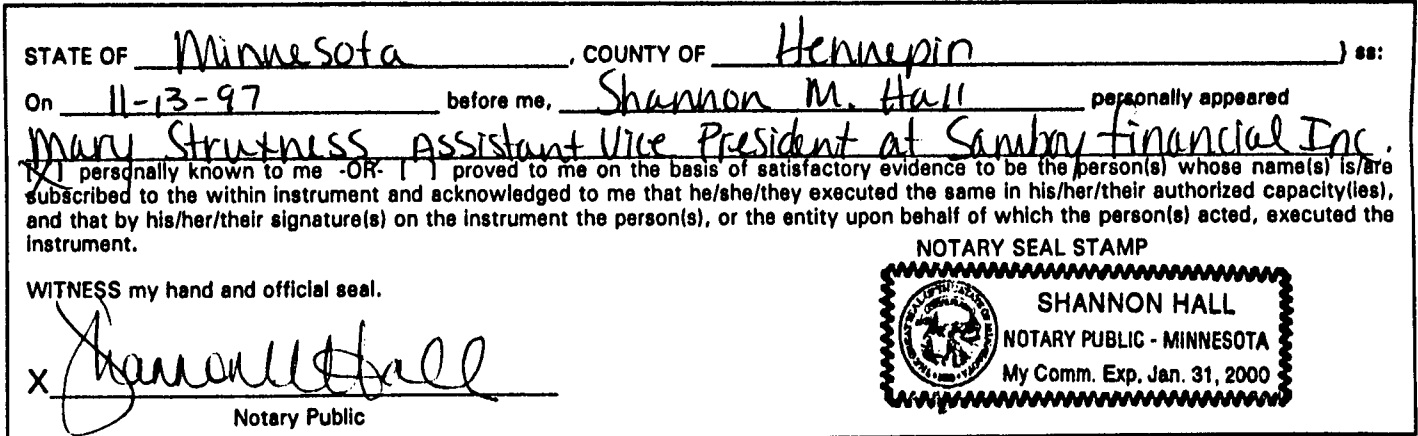 STATE OF Minnesota, COUNTY OF Hennepin } ss:
On 11-13-97 before me, Shannon M. Hall personally appeared
Mary Strutness Assistant Vice President at Samboy Financial Inc.
[X] personally known to me -OR- [ ] proved to me on the basis of satisfactory evidence to be the person(s) whose name(s) is/are
subscribed to the within instrument and acknowledged to me that he/she/they executed the same in his/her/their authorized capacity(ies),
and that by his/her/their signature(s) on the instrument the person(s), or the entity upon behalf of which the person(s) acted, executed the
instrument.
NOTARY SEAL STAMP
WITNESS my hand and official seal.
SHANNON HALL
NOTARY PUBLIC - MINNESOTA
My Comm. Exp. Jan. 31, 2000
X Shannon M Hall
Notary Public